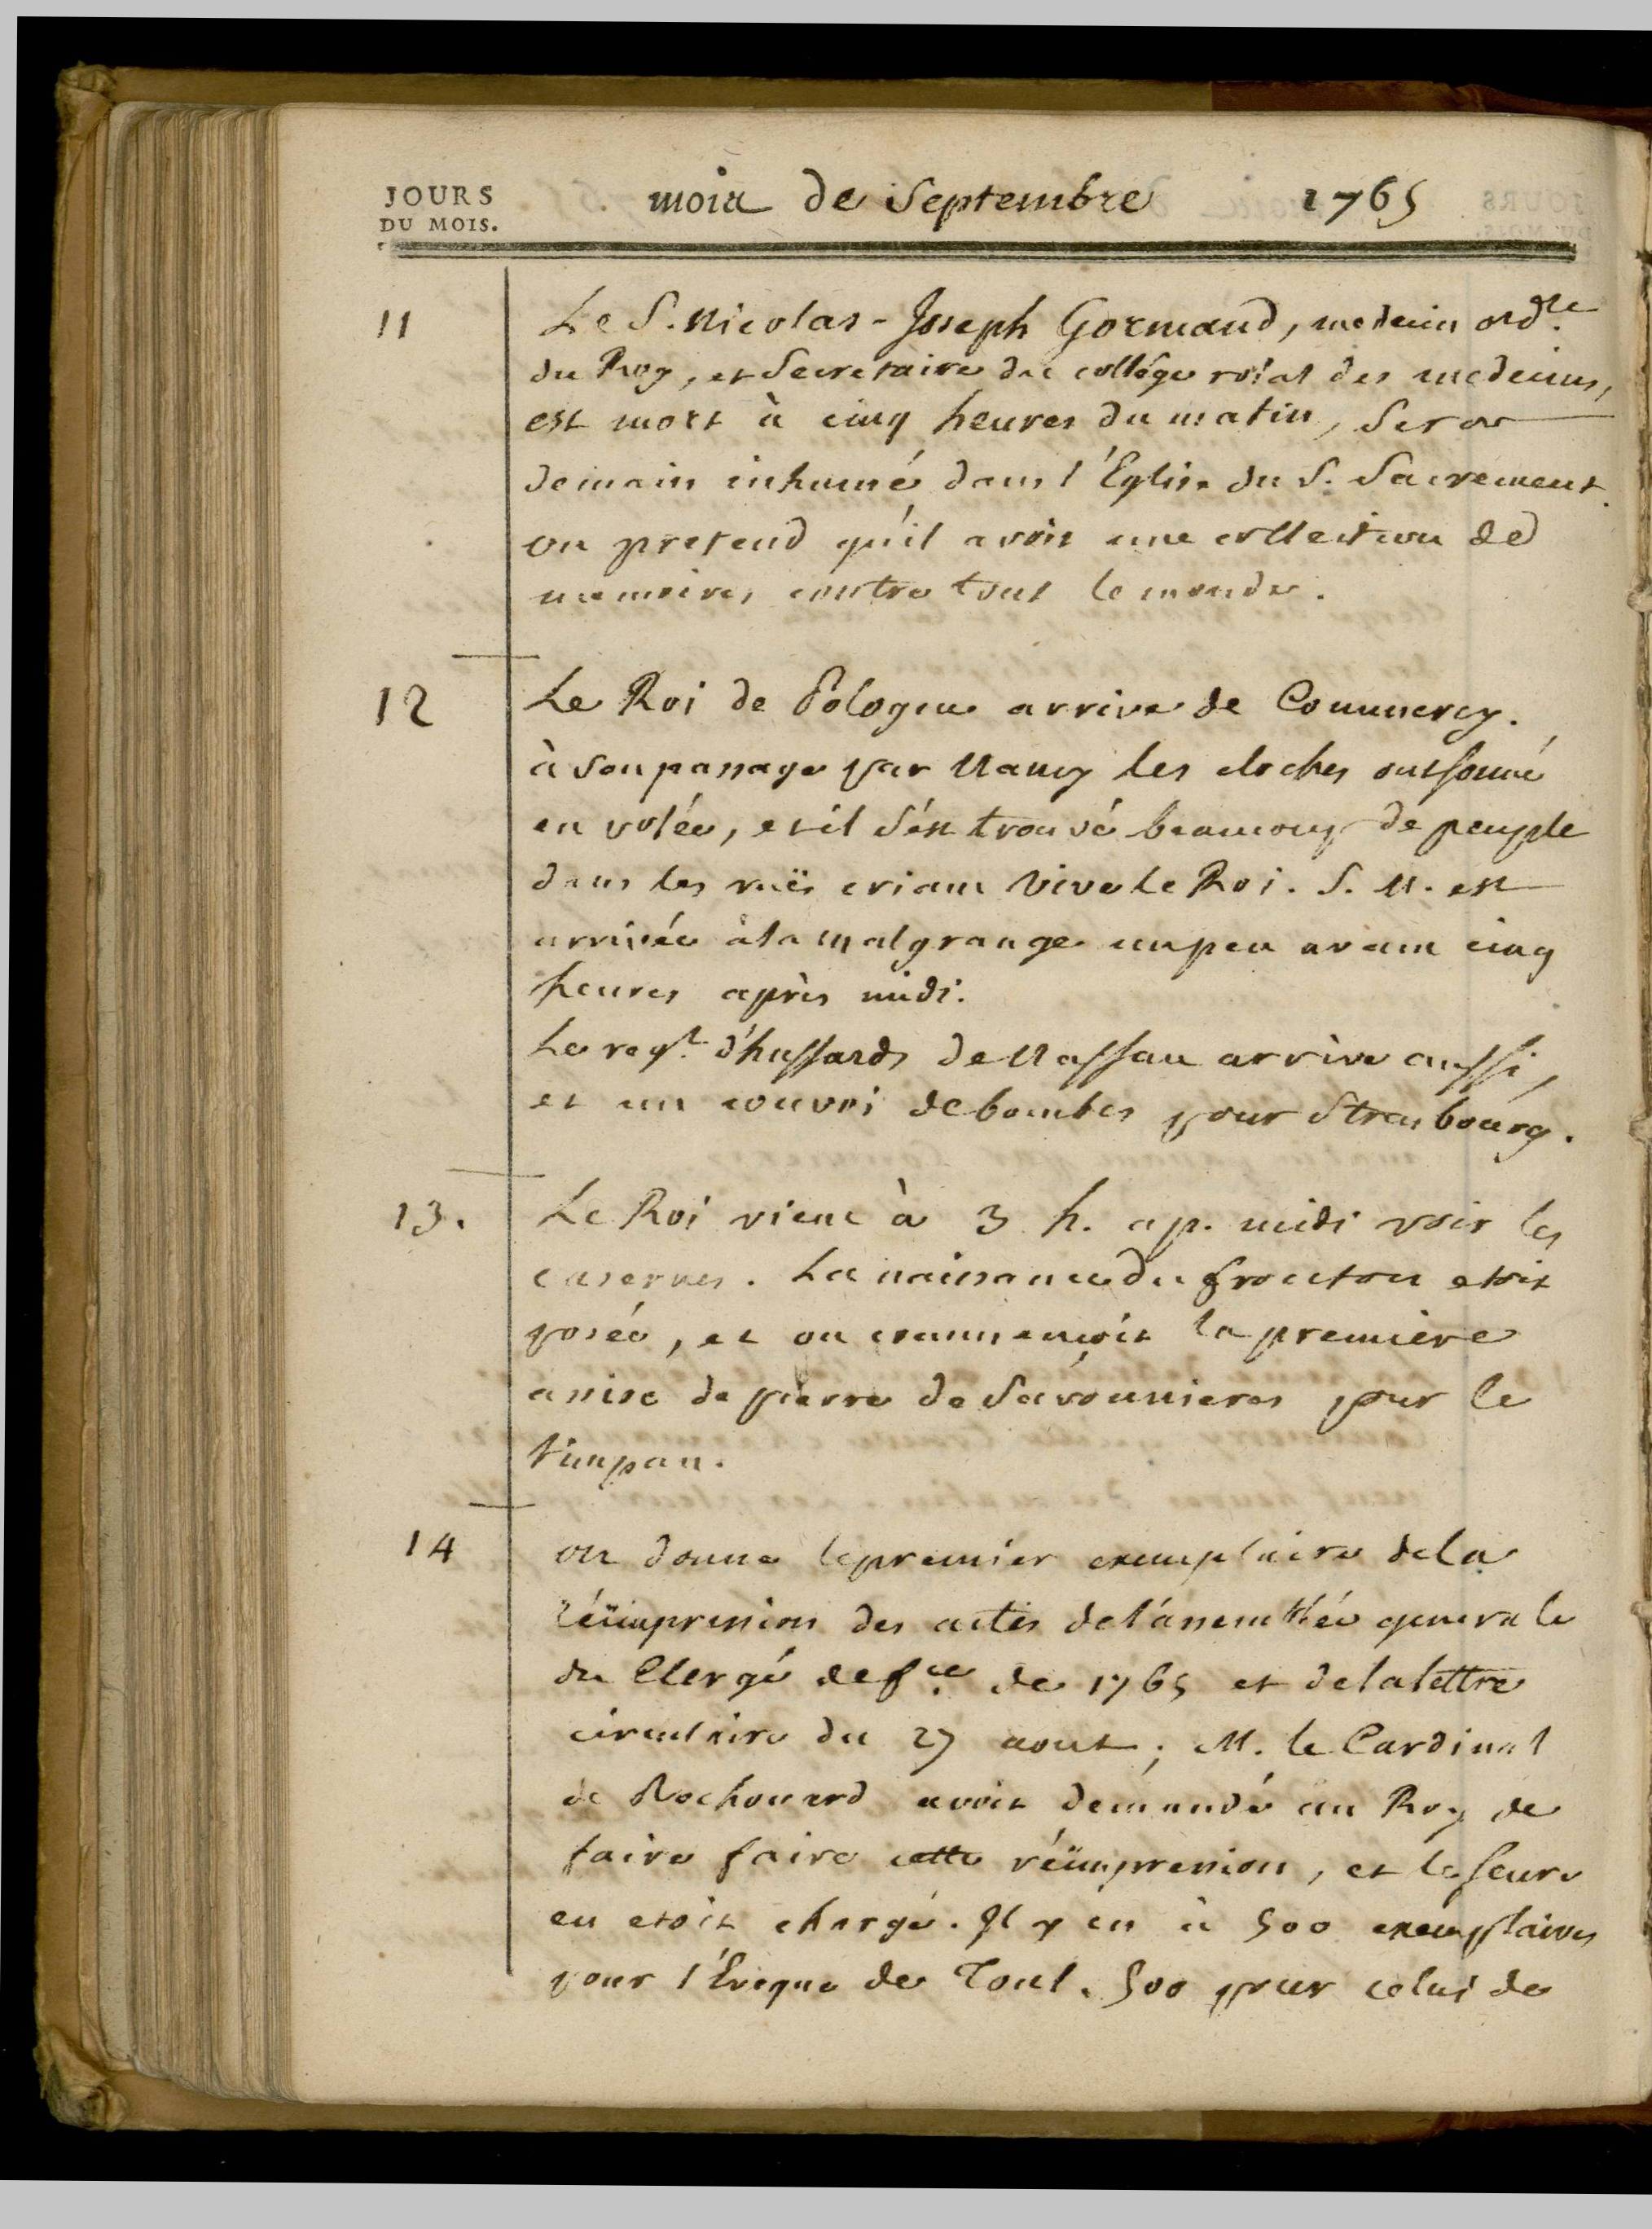 JOURS
DU MOIS.
mois de Septembre 1765
11
Le S. Nicolas-Joseph Gormand, medecin ord.re
du Roy, et Secretaire du collége roïal des medecins,
est mort à cinq heures du matin, Sera
demain inhumé dans l'Eglise du S. Sacrement.
on pretend qu'il avoit une collection de
memoires contre tout le monde.
12
Le Roi de Pologne arrive de Commercy.
à son passage par Nancy les cloches ont sonné
en volée, et il s'est trouvé beaucoup de peuple
dans les ruës criant Vive le Roi. S. M. est
arrivée à la malgrange un peu avant cinq
heures après midi.
Le reg.t d'hussards de Nassau arrive aussi,
et un convoi de bombes pour Strasbourg.
13.
Le Roi vient à 3 h. ap. midi voir les
casernes. La naissance du fronton etoit
posée, et on commençoit la première
assise de pierre de Savonnieres pour le
timpan.
14
on donne le premier exemplaire de la
réïmpression des actes de l'assemblée generale
du Clergé de f.ce de 1765 et de la lettre
circulaire du 27 aout; M. le Cardinal
de Rochouard avoit demandé au Roy de
faire faire cette réïmpression, et leseure
en etoit chargé. Il y en a 500 exemplaires
pour l'Evêque de Toul. 500 pour celui de